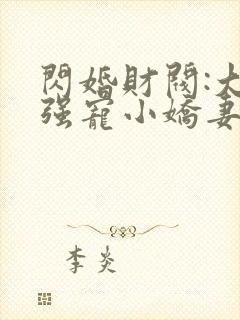 閃婚財閥:大
强寵小嬌妻
李炎